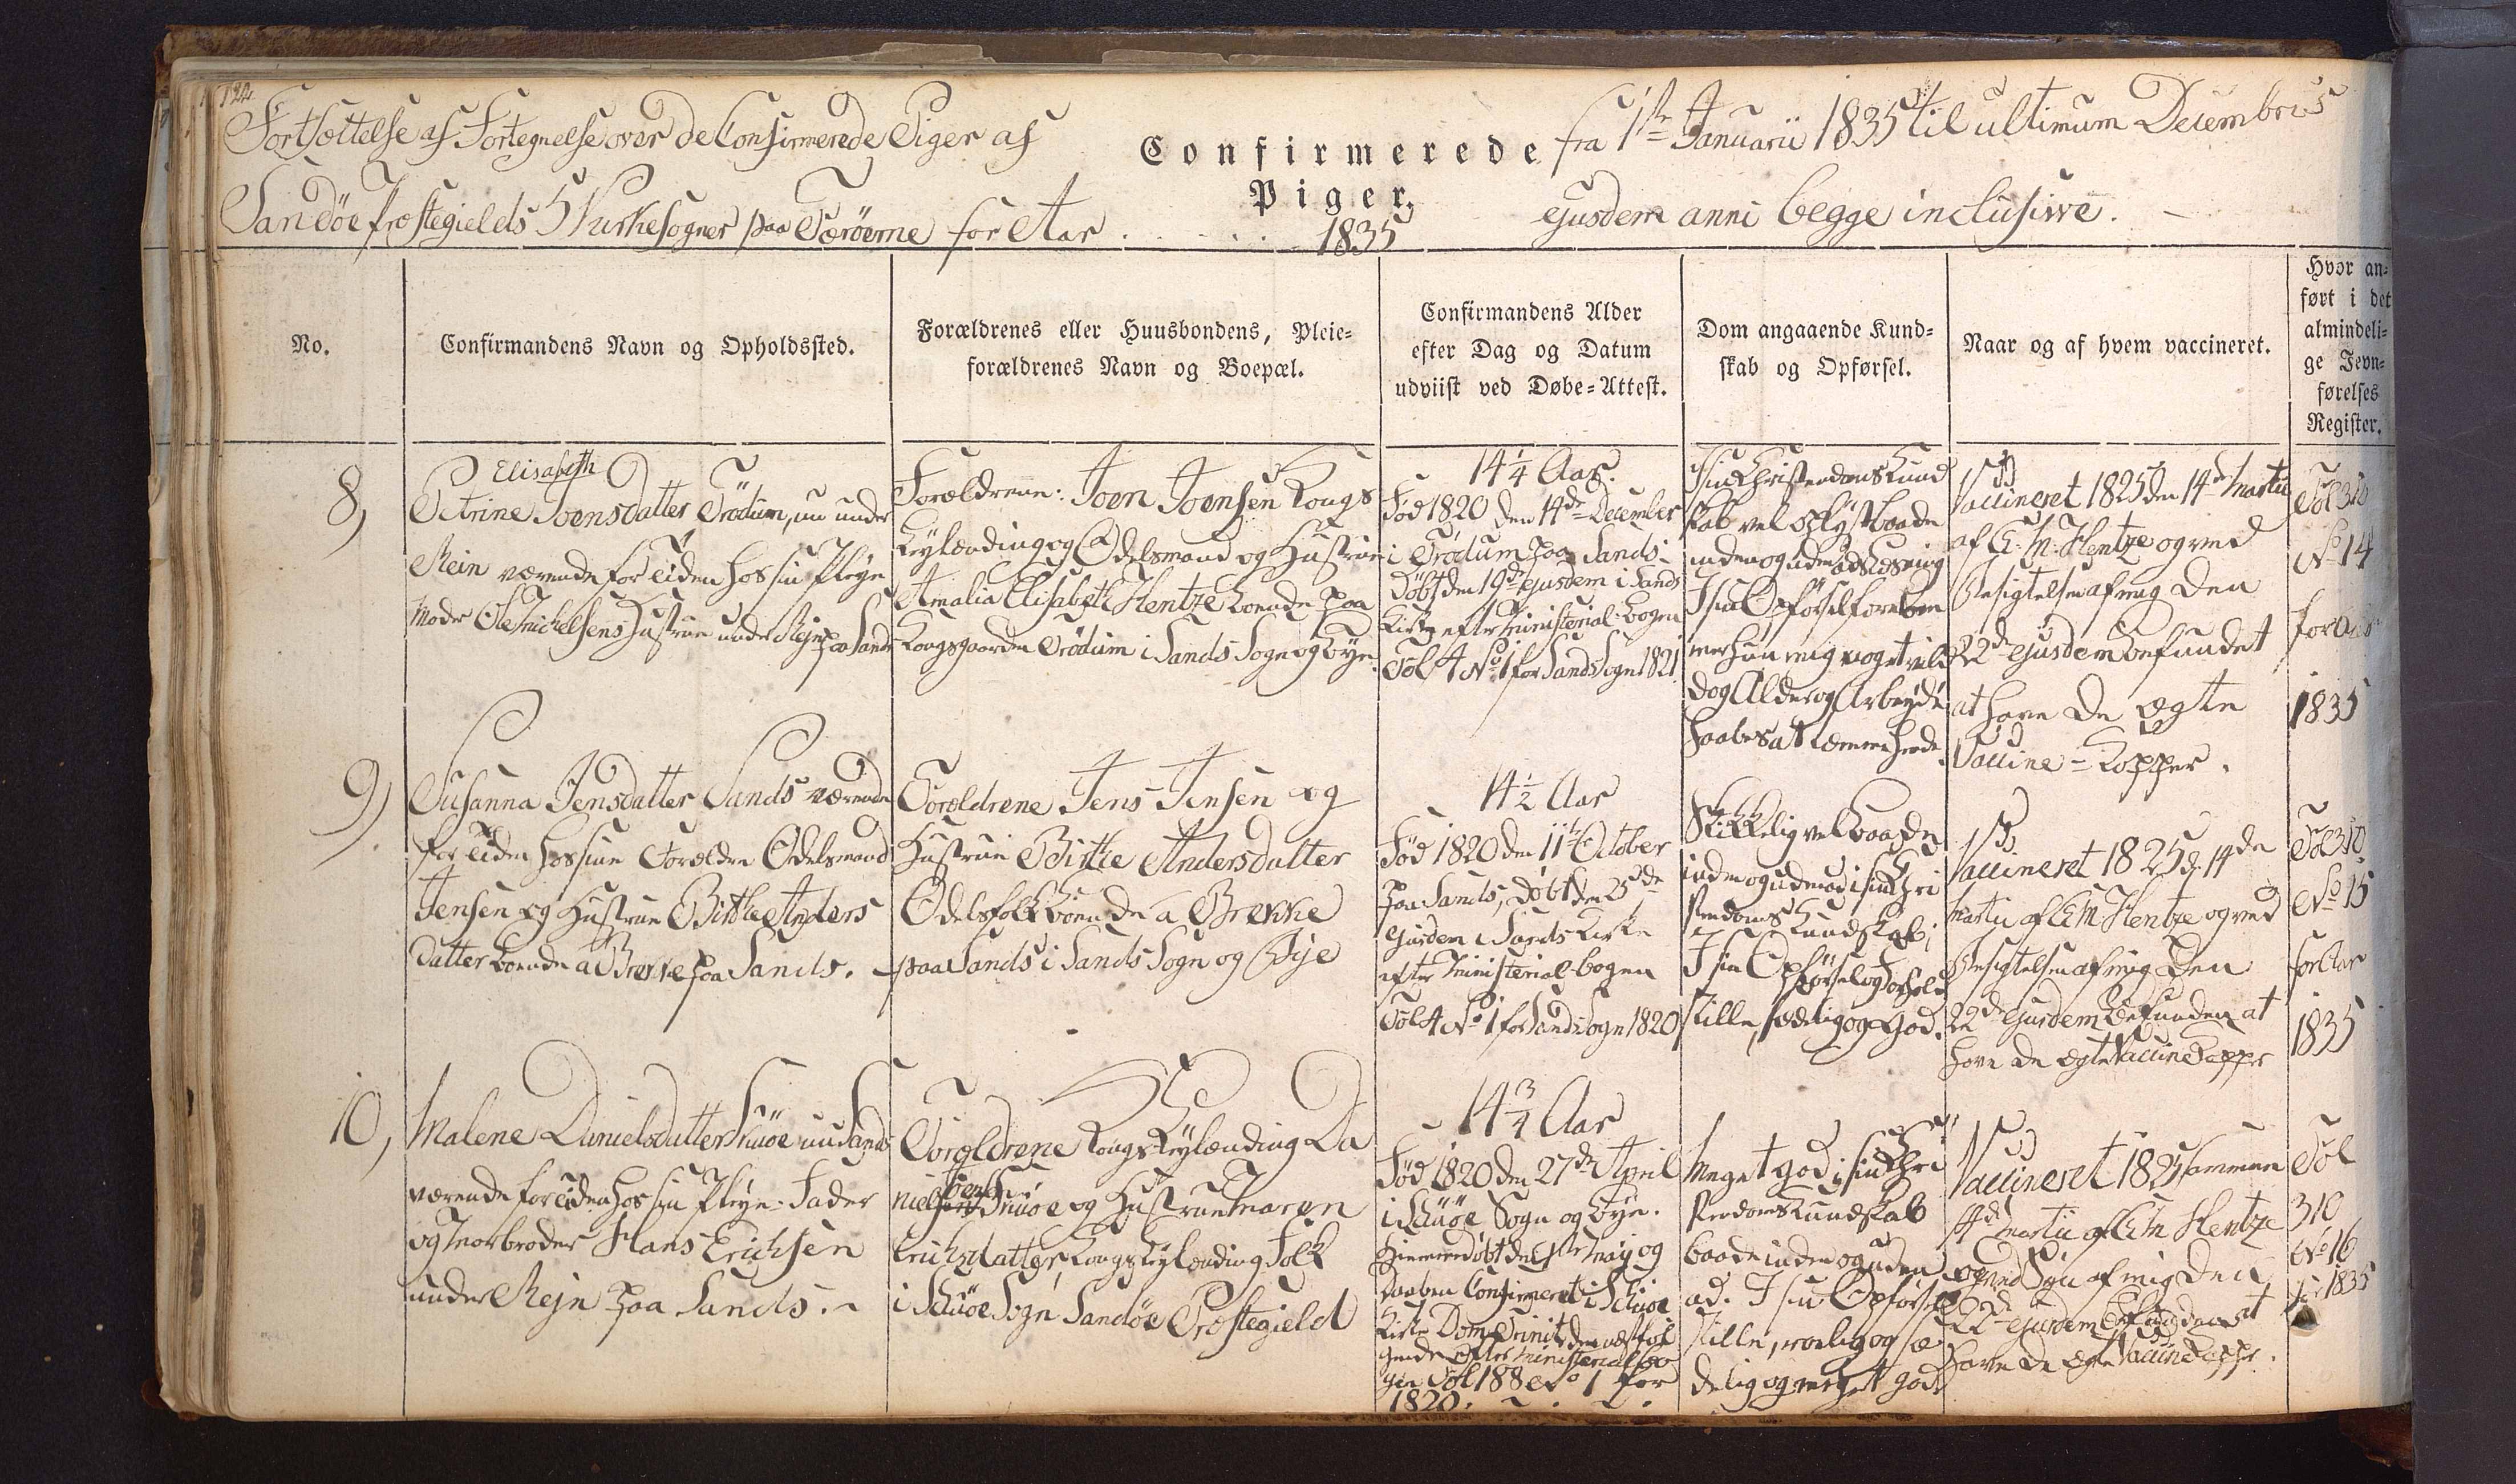 124
Fortsættelse af Fortegnelse over de Confirmerede Piger af
Sandöe Præstegields 5 Kirkesogner paa Færöerne for Aar
Confirmerede
Piger.
1835
fra 1ste Januarii 1835 til ultimum Decembris
ejusdem anni begge inclusive.
No.
Confirmandens Navn og Opholdssted.
Forældrenes eller Huusbondens, Pleie-
forældrenes Navn og Boepæl.
Confirmandens Alder
efter Dag og Datum
udviist ved Døbe-Attest.
Dom angaaende Kund-
skab og Opførsel.
Naar og af hvem vaccineret.
Hvor an-
ført i det
almindeli-
ge Jevn-
førelses
Register.
8)
Elisabeth
Petrine Joensdatter Trödum, nu under
Rein værende for Tiden hos sin Pleye
Moder Ole Michelsens Hustrue under Rejn paa Sands
Forældrene: Joen Joensen Kongs
Leylænding og Odelsmand og Hustrue
Amalia Elisabeth Hentze boende paa
Kongsgaarden Trödum i Sands Sogn og Bye.
14 1/4 Aar.
Föd 1820 den 14de December
i Trödum paa Sands
Döbt den 19de ejusdem i Sands
Kirke efter Ministerial-bogen
Fol 4 No 1 for Sands Sogn 1821
I sin Christendoms Kund
skab vel oplyst baade
inden og udenad
I sin Opförsel forekom
mer hun mig noget vild
dog Alder og Arbeyde
haabes at
Vaccineret 1825 den 14de Martii
af C. M. Hentze og ved
Besigtelsen af mig den
22de ejusdem befundet
at have de ægte
Vaccine-Kopper.
Fol 310
No 14
for Aar
1835
9)
Susanna Jensdatter Sands værende
for Tiden hos sine Forældre Odelsmand
Jensen og Hustrue Birthe Anders
datter boende a Brekke paa Sands.
Forældrene Jens Jensen og
Hustrue Birthe Andersdatter
Odelsfolk boende a Brekke
paa Sands i Sands Sogn og Bye
14 1/2 Aar
Föd 1820 den 11te October
paa Sands, döbt den 25de
ejusdem i Sands Kirke
efter Ministerial-bogen
Fol 4 No 1 for Sands Sogn 1820
Skikkelig vel baade
inden og udenad i sin Chri
stendoms Kundskab;
I sin Opförsel og Forhold
stille, sædelig og god.
Vaccineret 1825 d. 14de
Martii af C M Hentze og ved
Besigtelsen af mig den
22de ejusdem befunden at
have de ægte Vaccine Kopper
Fol 310
No 15
for Aar
1835
10,
Malene Danielsdatter Skuöe nu Sands
værende for Tiden hos sin Pleye-Fader
og Morbroder Hans Erichsen
under Rejn paa Sands.
Forældrene Kongs Leylænding Da
niel Skuöe og Hustrue Maren
Erichsdatter, Kongs Leylænding Folk
i Skuöe Sogn Sandöe Præstegield
14 3/4 Aar
Föd 1820 den 27de April
i Skuöe Sogn og Bye.
Hiemmedöbt den 1ste Maij og
Daaben Confirmeret i Skuöe
Kirke Dom Trinit den næstföl
gende efter Ministerialbo
gen Fol 188 No 1 for
1820.
Meget god i sin Chri
stendoms Kundskab
baade inden og uden
ad. I sin Opförsel
stille, rolig og sæ
delig og meget god
Vaccineret 1825 sammen
14de Martii af C M Hentze
og ved Syn af mig den
22de ejusdem befunden at
have de ægte Vaccine Kopper.
Fol
310
No 16
for 1835